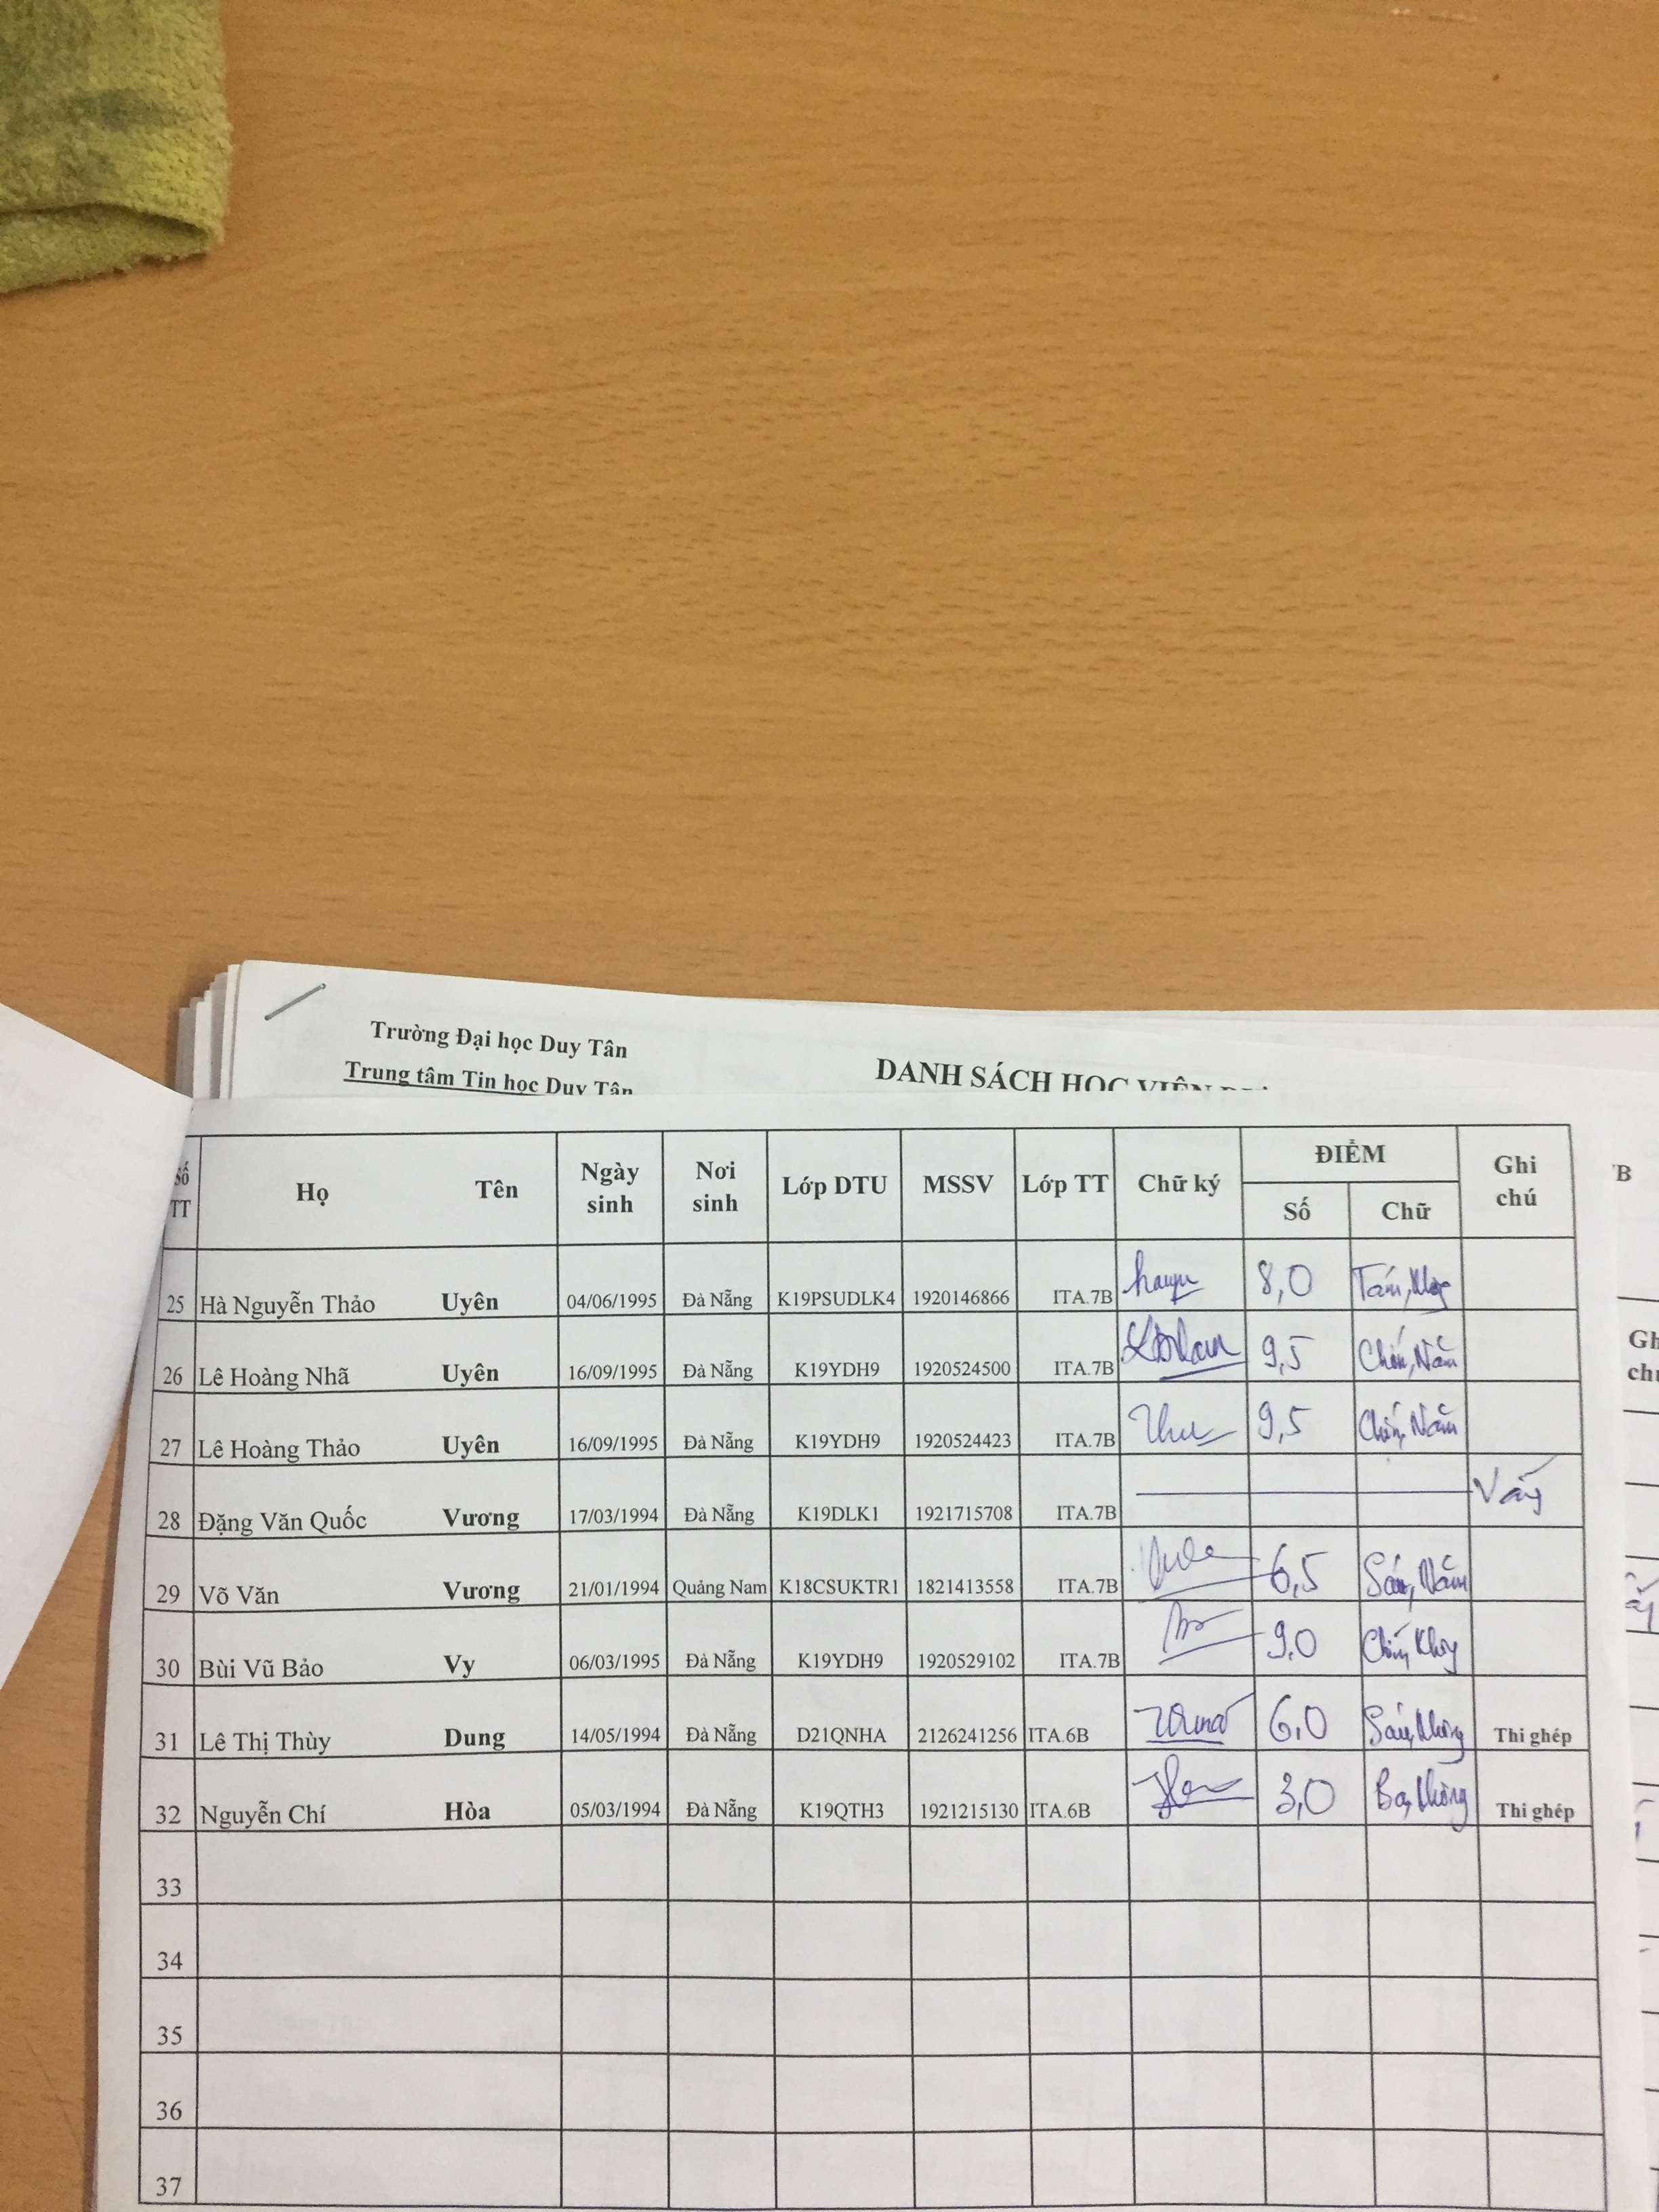 Trường Đại học Duy Tân
Trung tâm Tin học Duy Tân
DANH SÁCH HỌC VIÊN
Số TT Họ Tên Ngày sinh Nơi sinh Lớp DTU MSSV Lớp TT Chữ ký ĐIỂM Ghi chú
Số Chữ
25 Hà Nguyễn Thảo Uyên 04/06/1995 Đà Nẵng K19PSUDLK4 1920146866 ITA.7B 8,0 Tám, Không
26 Lê Hoàng Nhã Uyên 16/09/1995 Đà Nẵng K19YDH9 1920524500 ITA.7B 9,5 Chín, Năm
27 Lê Hoàng Thảo Uyên 16/09/1995 Đà Nẵng K19YDH9 1920524423 ITA.7B 9,5 Chín, Năm
28 Đặng Văn Quốc Vương 17/03/1994 Đà Nẵng K19DLK1 1921715708 ITA.7B Vắng
29 Võ Văn Vương 21/01/1994 Quảng Nam K18CSUKTR1 1821413558 ITA.7B 6,5 Sáu, Năm
30 Bùi Vũ Bảo Vy 06/03/1995 Đà Nẵng K19YDH9 1920529102 ITA.7B 9,0 Chín, Không
31 Lê Thị Thùy Dung 14/05/1994 Đà Nẵng D21QNHA 2126241256 ITA.6B 6,0 Sáu, Không Thi ghép
32 Nguyễn Chí Hòa 05/03/1994 Đà Nẵng K19QTH3 1921215130 ITA.6B 3,0 Ba, Không Thi ghép
33
34
35
36
37